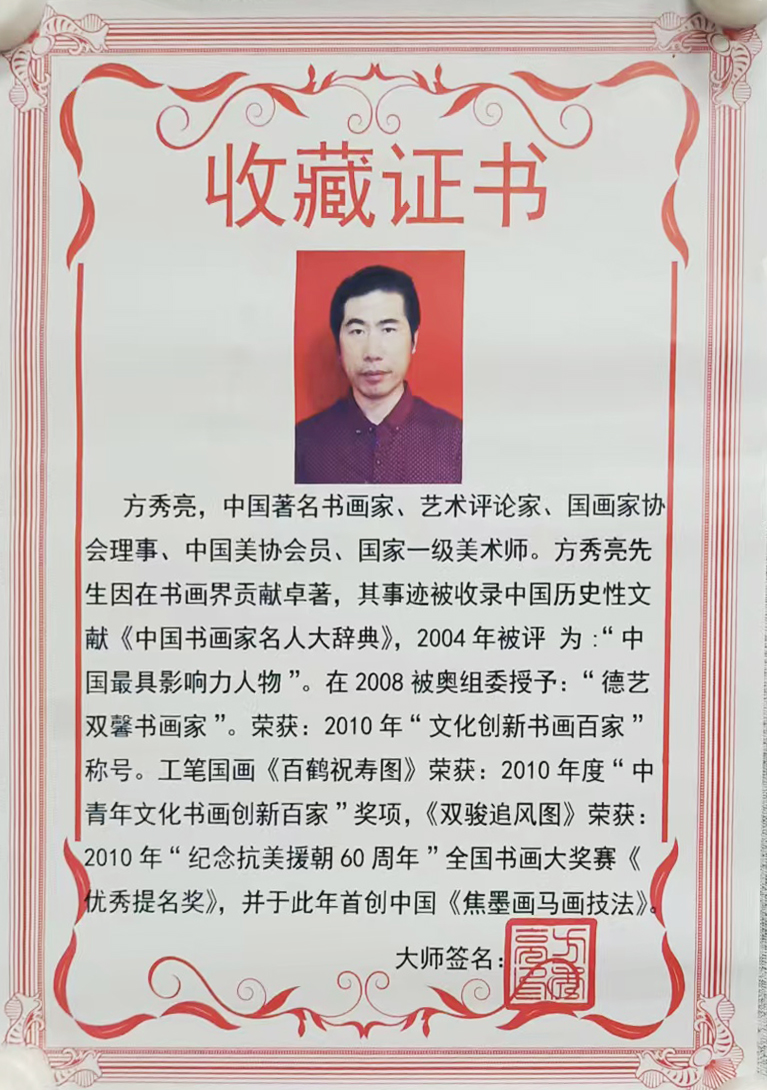 收藏证书
方秀亮，中国著名书画家、艺术评论家、国画家协
会理事、中国美协会员、国家一级美术师。方秀亮先
生因在书画界贡献卓著，其事迹被收录中国历史性文
献《中国书画家名人大辞典》，2004年被评 为：“中
国最具影响力人物”。在2008被奥组委授予：“德艺
双馨书画家”。荣获：2010年“文化创新书画百家”
称号。工笔国画《百鹤祝寿图》荣获：2010年度“中
青年文化书画创新百家”奖项，《双骏追风图》荣获：
2010年“纪念抗美援朝60周年”全国书画大奖赛《
优秀提名奖》，并于此年首创中国《焦墨画马画技法》。
大师签名：